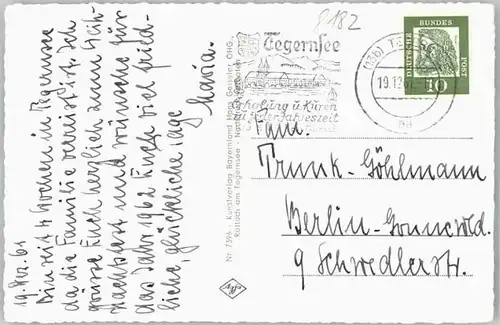 19. Dez. 61
Bin seit 4 Wochen in Tegernsee
da die Familie verreist ist. Ich
grüsse Euch herzlich zum Weih-
nachtsfest und wünsche für
das Jahr 1962 Euch viel fried-
liche, glückliche Tage
Maria.
Nr. 7396 - Kunstverlag Bayernland Hans Gessler OHG.
Rottach am Tegernsee
8182
Tegernsee
Erholung u. Kuren
zu jeder Jahreszeit
19.12.61
DEUTSCHE
BUNDES
POST
10
Fam.
Trunk-Göhlmann
Berlin-Grunewald.
9 Schwedlerstr.